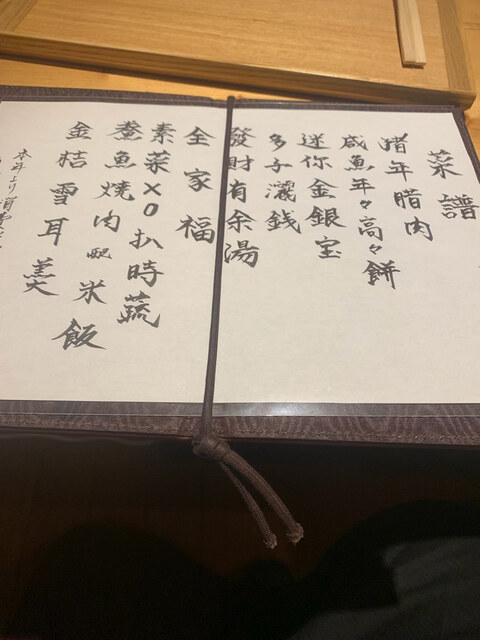 菜譜
猪年腊肉
咸魚年々高々餅
迷你金銀宝
多子灑銭
發財有余湯
全家福
素菜XO扒時蔬
鮝魚焼肉配米飯
金桔雪耳羹
本年より